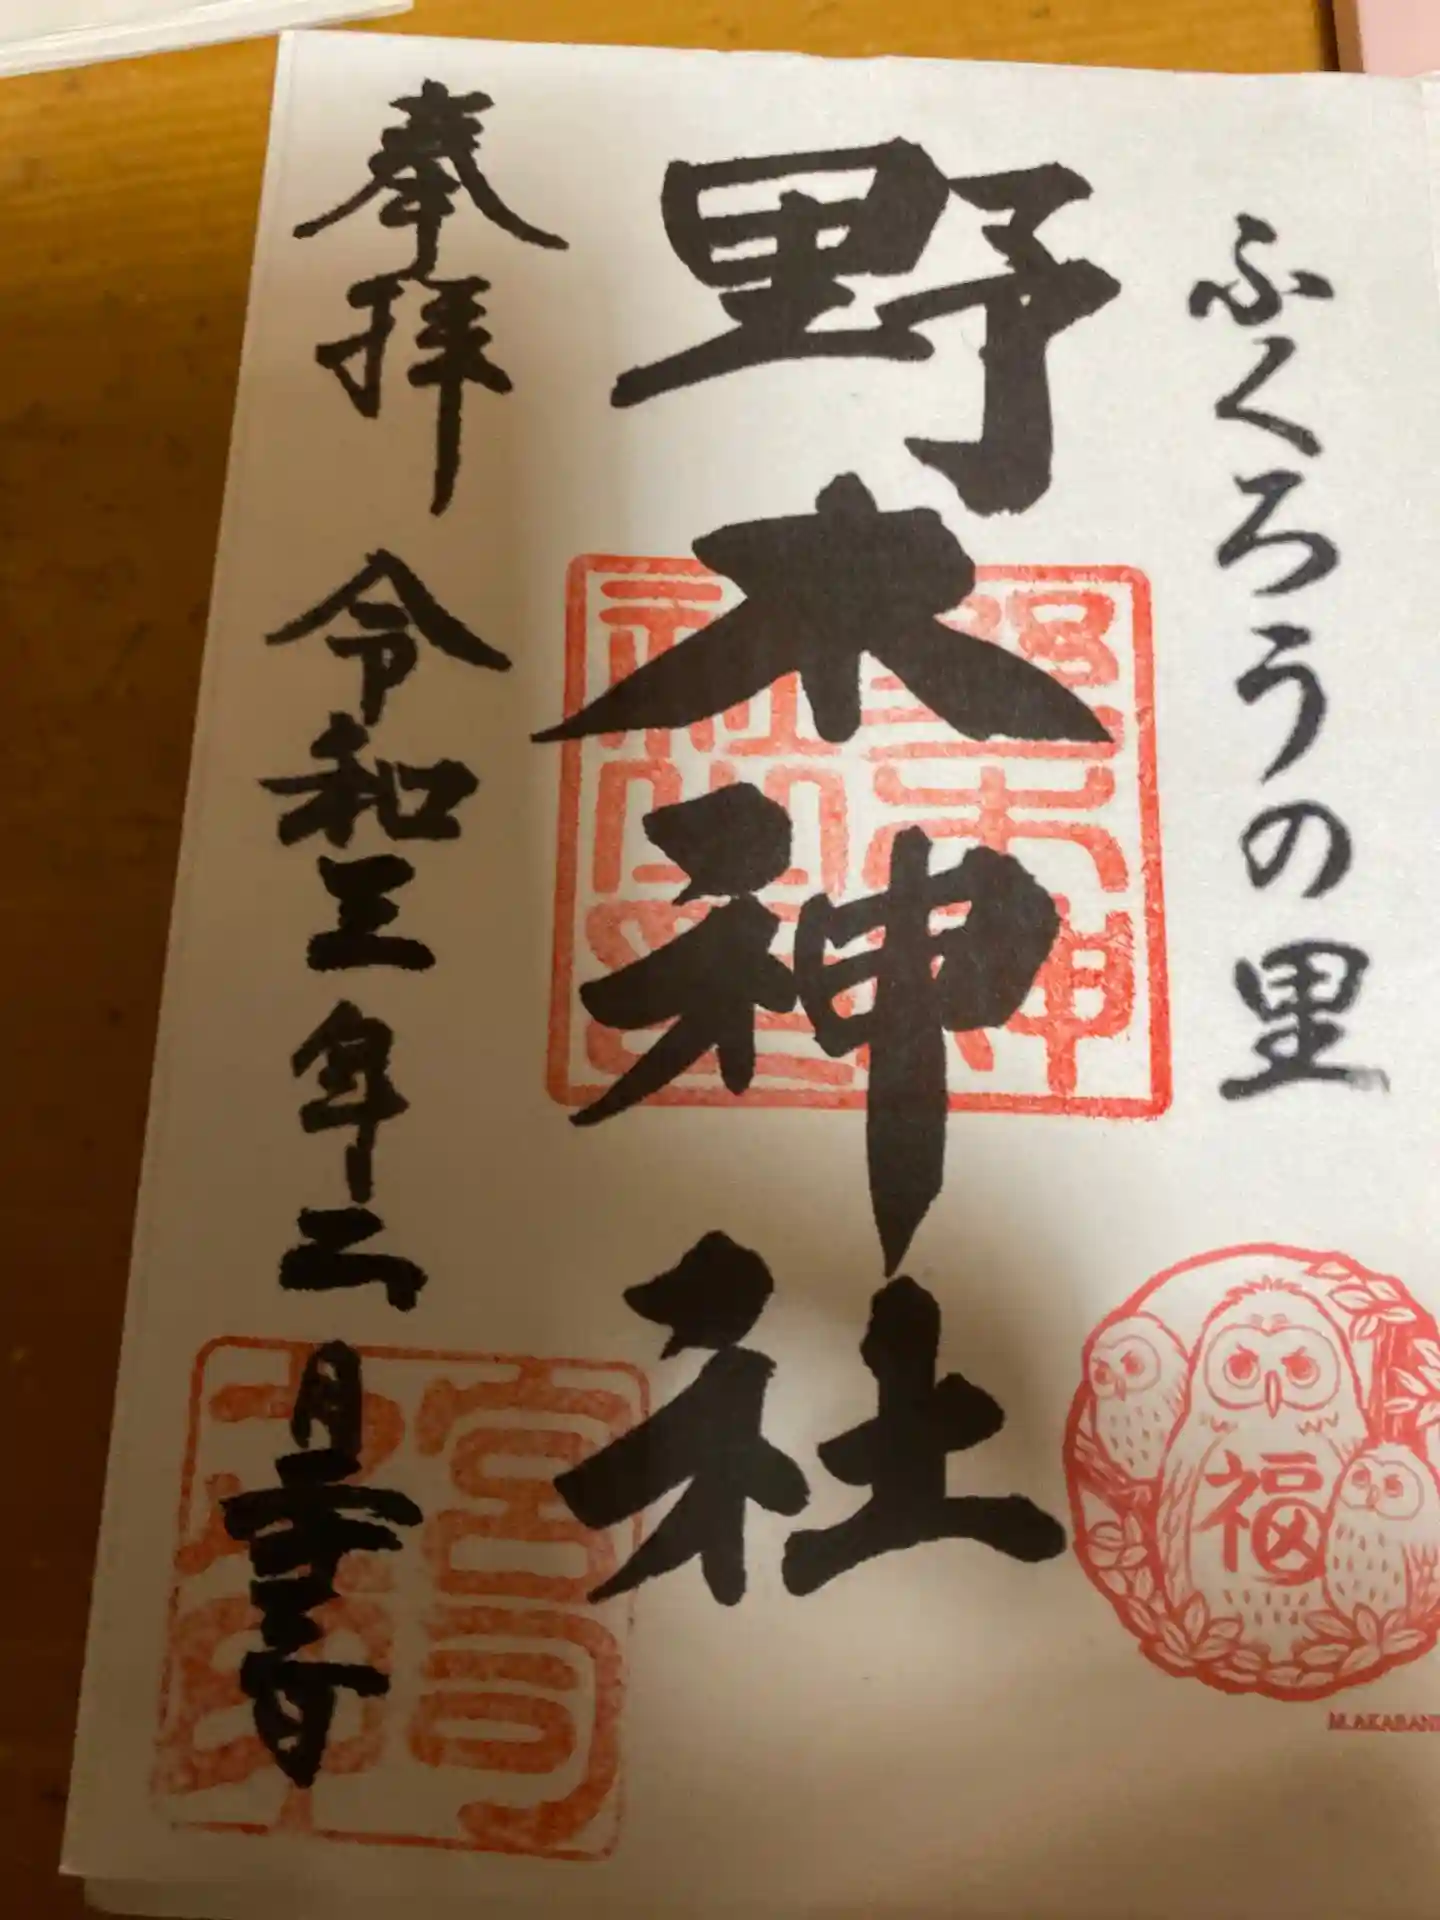 ふくろうの里
野木神社
奉拝 令和三年二月二十三日
野木神社之印
福
宮司之印